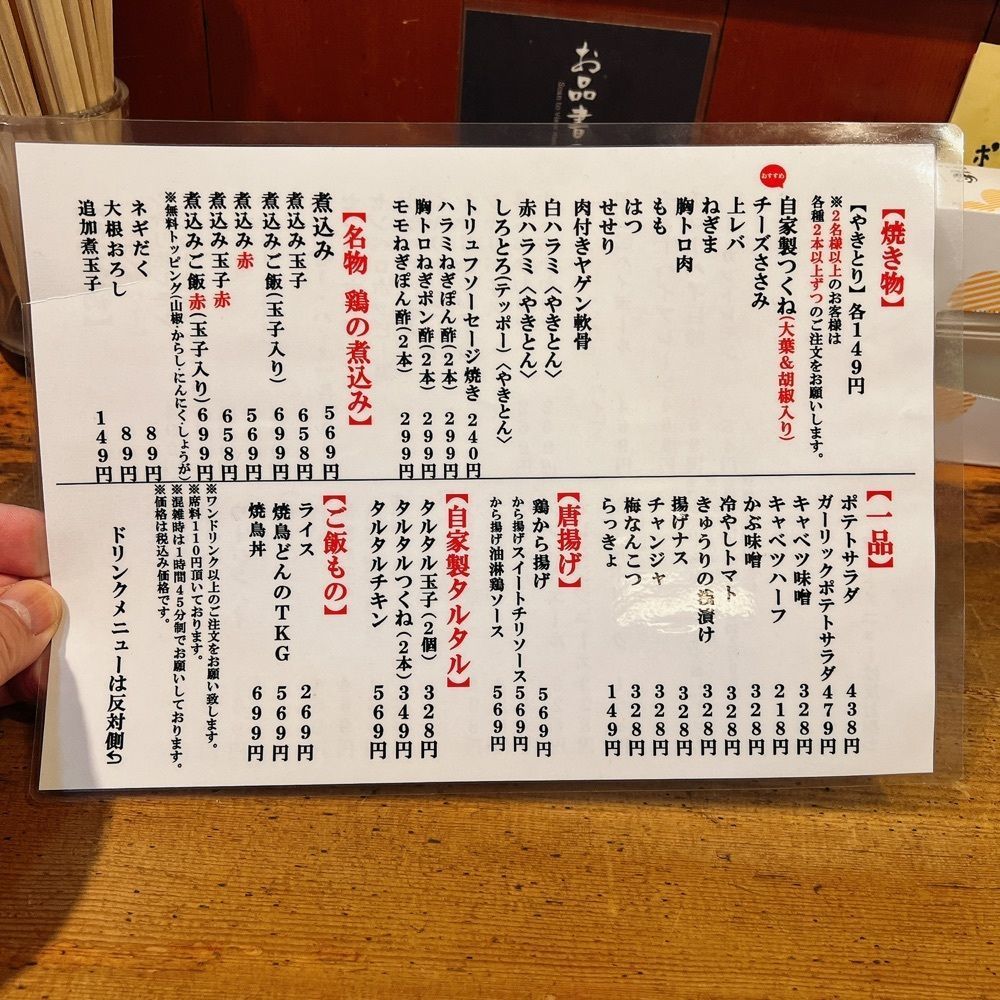 お品書
【焼き物】
【やきとり】各149円
※2名様以上のお客様は
各種2本以上ずつのご注文をお願いします。
おすすめ
自家製つくね(大葉&胡椒入り)
チーズささみ
上レバ
ねぎま
胸トロ肉
もも
はつ
せせり
肉付きヤゲン軟骨
白ハラミ〈やきとん〉
赤ハラミ〈やきとん〉
しろとろ(テッポー)〈やきとん〉
トリュフソーセージ焼き 240円
ハラミねぎぽん酢(2本) 299円
胸トロねぎポン酢(2本) 299円
モモねぎぽん酢(2本) 299円
【名物 鶏の煮込み】
煮込み 569円
煮込み玉子 658円
煮込みご飯(玉子入り) 699円
煮込み赤 569円
煮込み玉子赤 658円
煮込みご飯赤(玉子入り) 699円
※無料トッピング(山椒・からし・にんにく・しょうが)
ネギだく 89円
大根おろし 89円
追加煮玉子 149円
【一品】
ポテトサラダ 438円
ガーリックポテトサラダ 479円
キャベツ味噌 328円
キャベツハーフ 218円
かぶ味噌 328円
冷やしトマト 328円
きゅうりの浅漬け 328円
揚げナス 328円
チャンジャ 328円
梅なんこつ 328円
らっきょ 149円
【唐揚げ】
鶏から揚げ 569円
から揚げスイートチリソース 569円
から揚げ油淋鶏ソース 569円
【自家製タルタル】
タルタル玉子(2個) 328円
タルタルつくね(2本) 349円
タルタルチキン 569円
【ご飯もの】
ライス 269円
焼鳥どんのTKG 569円
焼鳥丼 699円
※ワンドリンク以上のご注文をお願い致します。
※席料110円頂いております。
※混雑時は1時間45分制でお願いしております。
※価格は税込み価格です。
ドリンクメニューは反対側↩